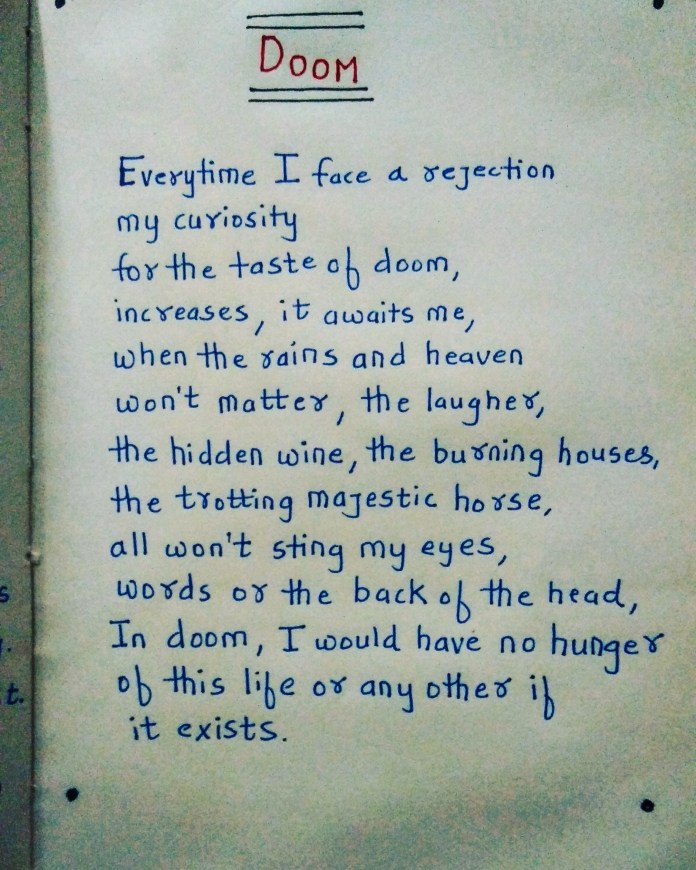 DOOM
Everytime I face a rejection
my curiosity
for the taste of doom,
increases, it awaits me,
when the rains and heaven
won't matter, the laugher,
the hidden wine, the burning houses,
the trotting majestic horse,
all won't sting my eyes,
words or the back of the head,
In doom, I would have no hunger
of this life or any other if
it exists.
s
t.